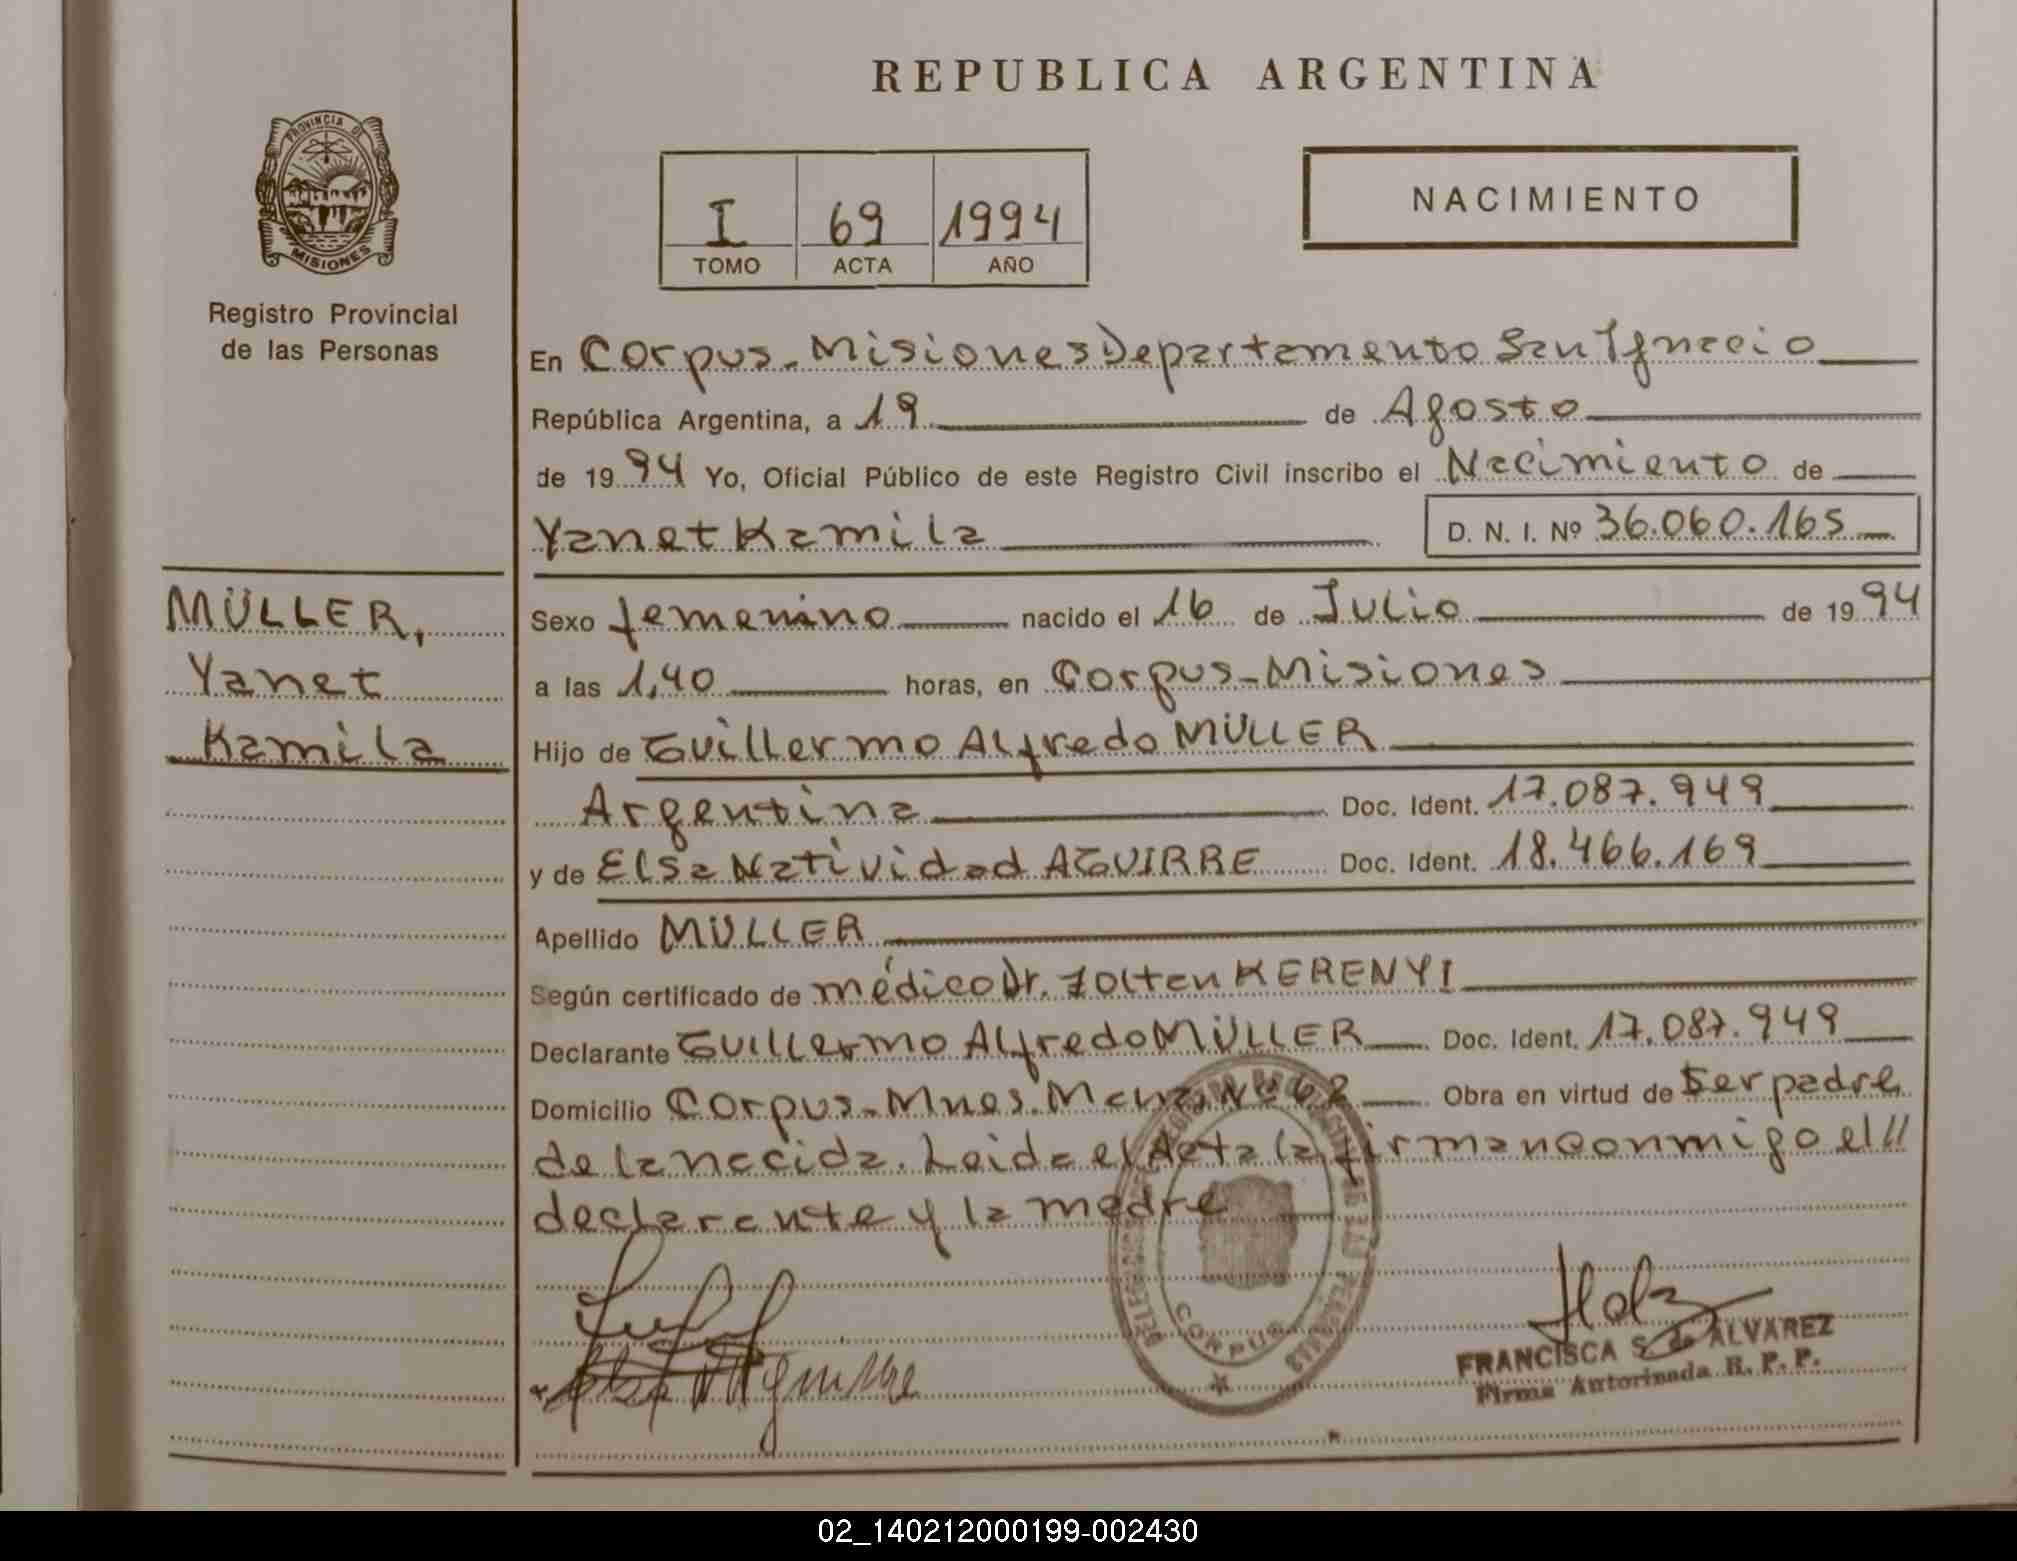 REPUBLICA ARGENTINA
PROVINCIA DE
MISIONES
Registro Provincial
de las Personas
I 69 1994
TOMO ACTA AÑO
NACIMIENTO
En Corpus-Misiones Departamento San Ignacio
República Argentina, a 19 de Agosto
de 1994 Yo, Oficial Público de este Registro Civil inscribo el Nacimiento de
Yanet Kamila D. N. I. Nº 36.060.165
MÜLLER,
Yanet
Kamila
Sexo femenino nacido el 16 de Julio de 1994
a las 1,40 horas, en Corpus-Misiones
Hijo de Guillermo Alfredo MÜLLER
Argentina Doc. Ident. 17.087.949
y de Elsa Natividad AGUIRRE Doc. Ident. 18.466.169
Apellido MÜLLER
Según certificado de médico Dr. Zolten KERENYI
Declarante Guillermo Alfredo MÜLLER Doc. Ident. 17.087.949
Domicilio Corpus-Mnes. Manz. Nº 62 Obra en virtud de Ser padre
de la nacida. Leida el Acta la firman conmigo el //
declarante y la madre
CORPUS
FRANCISCA S. de ALVAREZ
Firma Autorizada R. P. P.
02_140212000199-002430